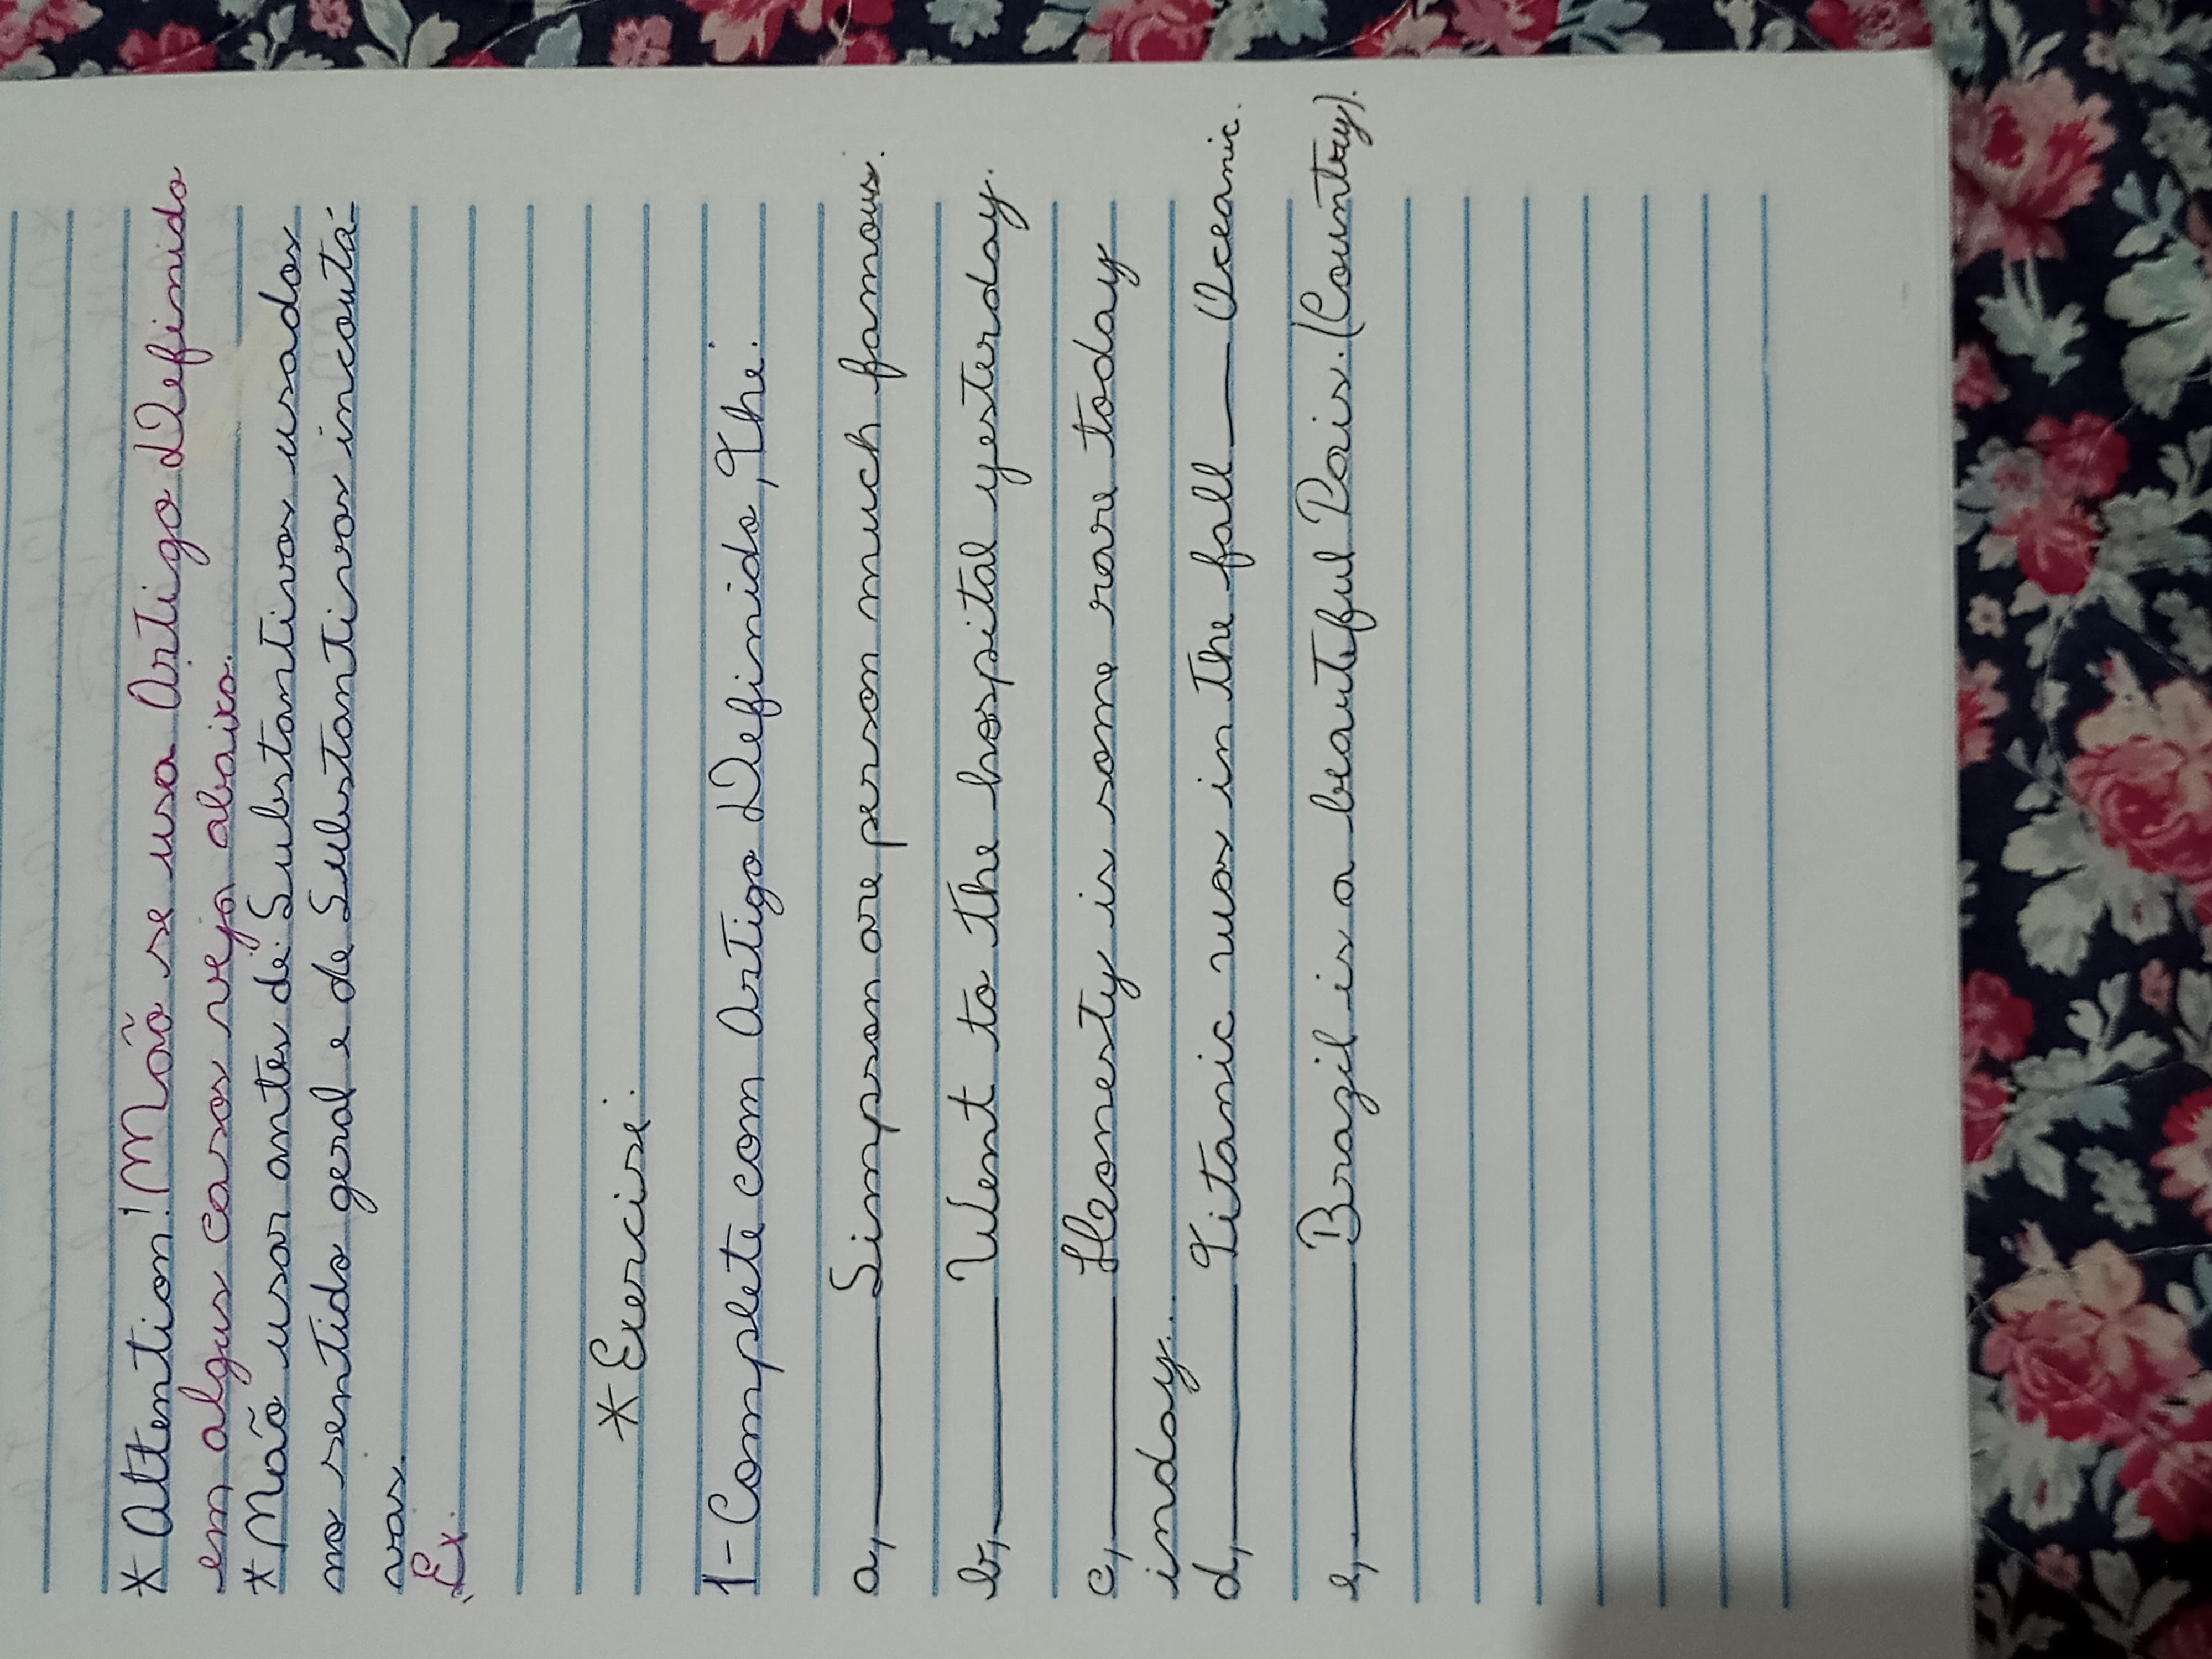 * Attention! Não se usa Artigo Definido
em algus casos veja abaixo.
* Não usar antes de: Substantivos usados
no sentido geral e de Substantivos incontá-
vas.
Ex.
* Exercise:
1- Complete com Artigo Definido, The:
a, ____ Simpson are person much famous.
b, ____ Went to the hospital yesterday.
c, ____ Honesty is some rare today
inday...
d, ____ Titanic was in the fall ____ Oceanic.
e, ____ Brazil is a beautiful Pais. (Country).